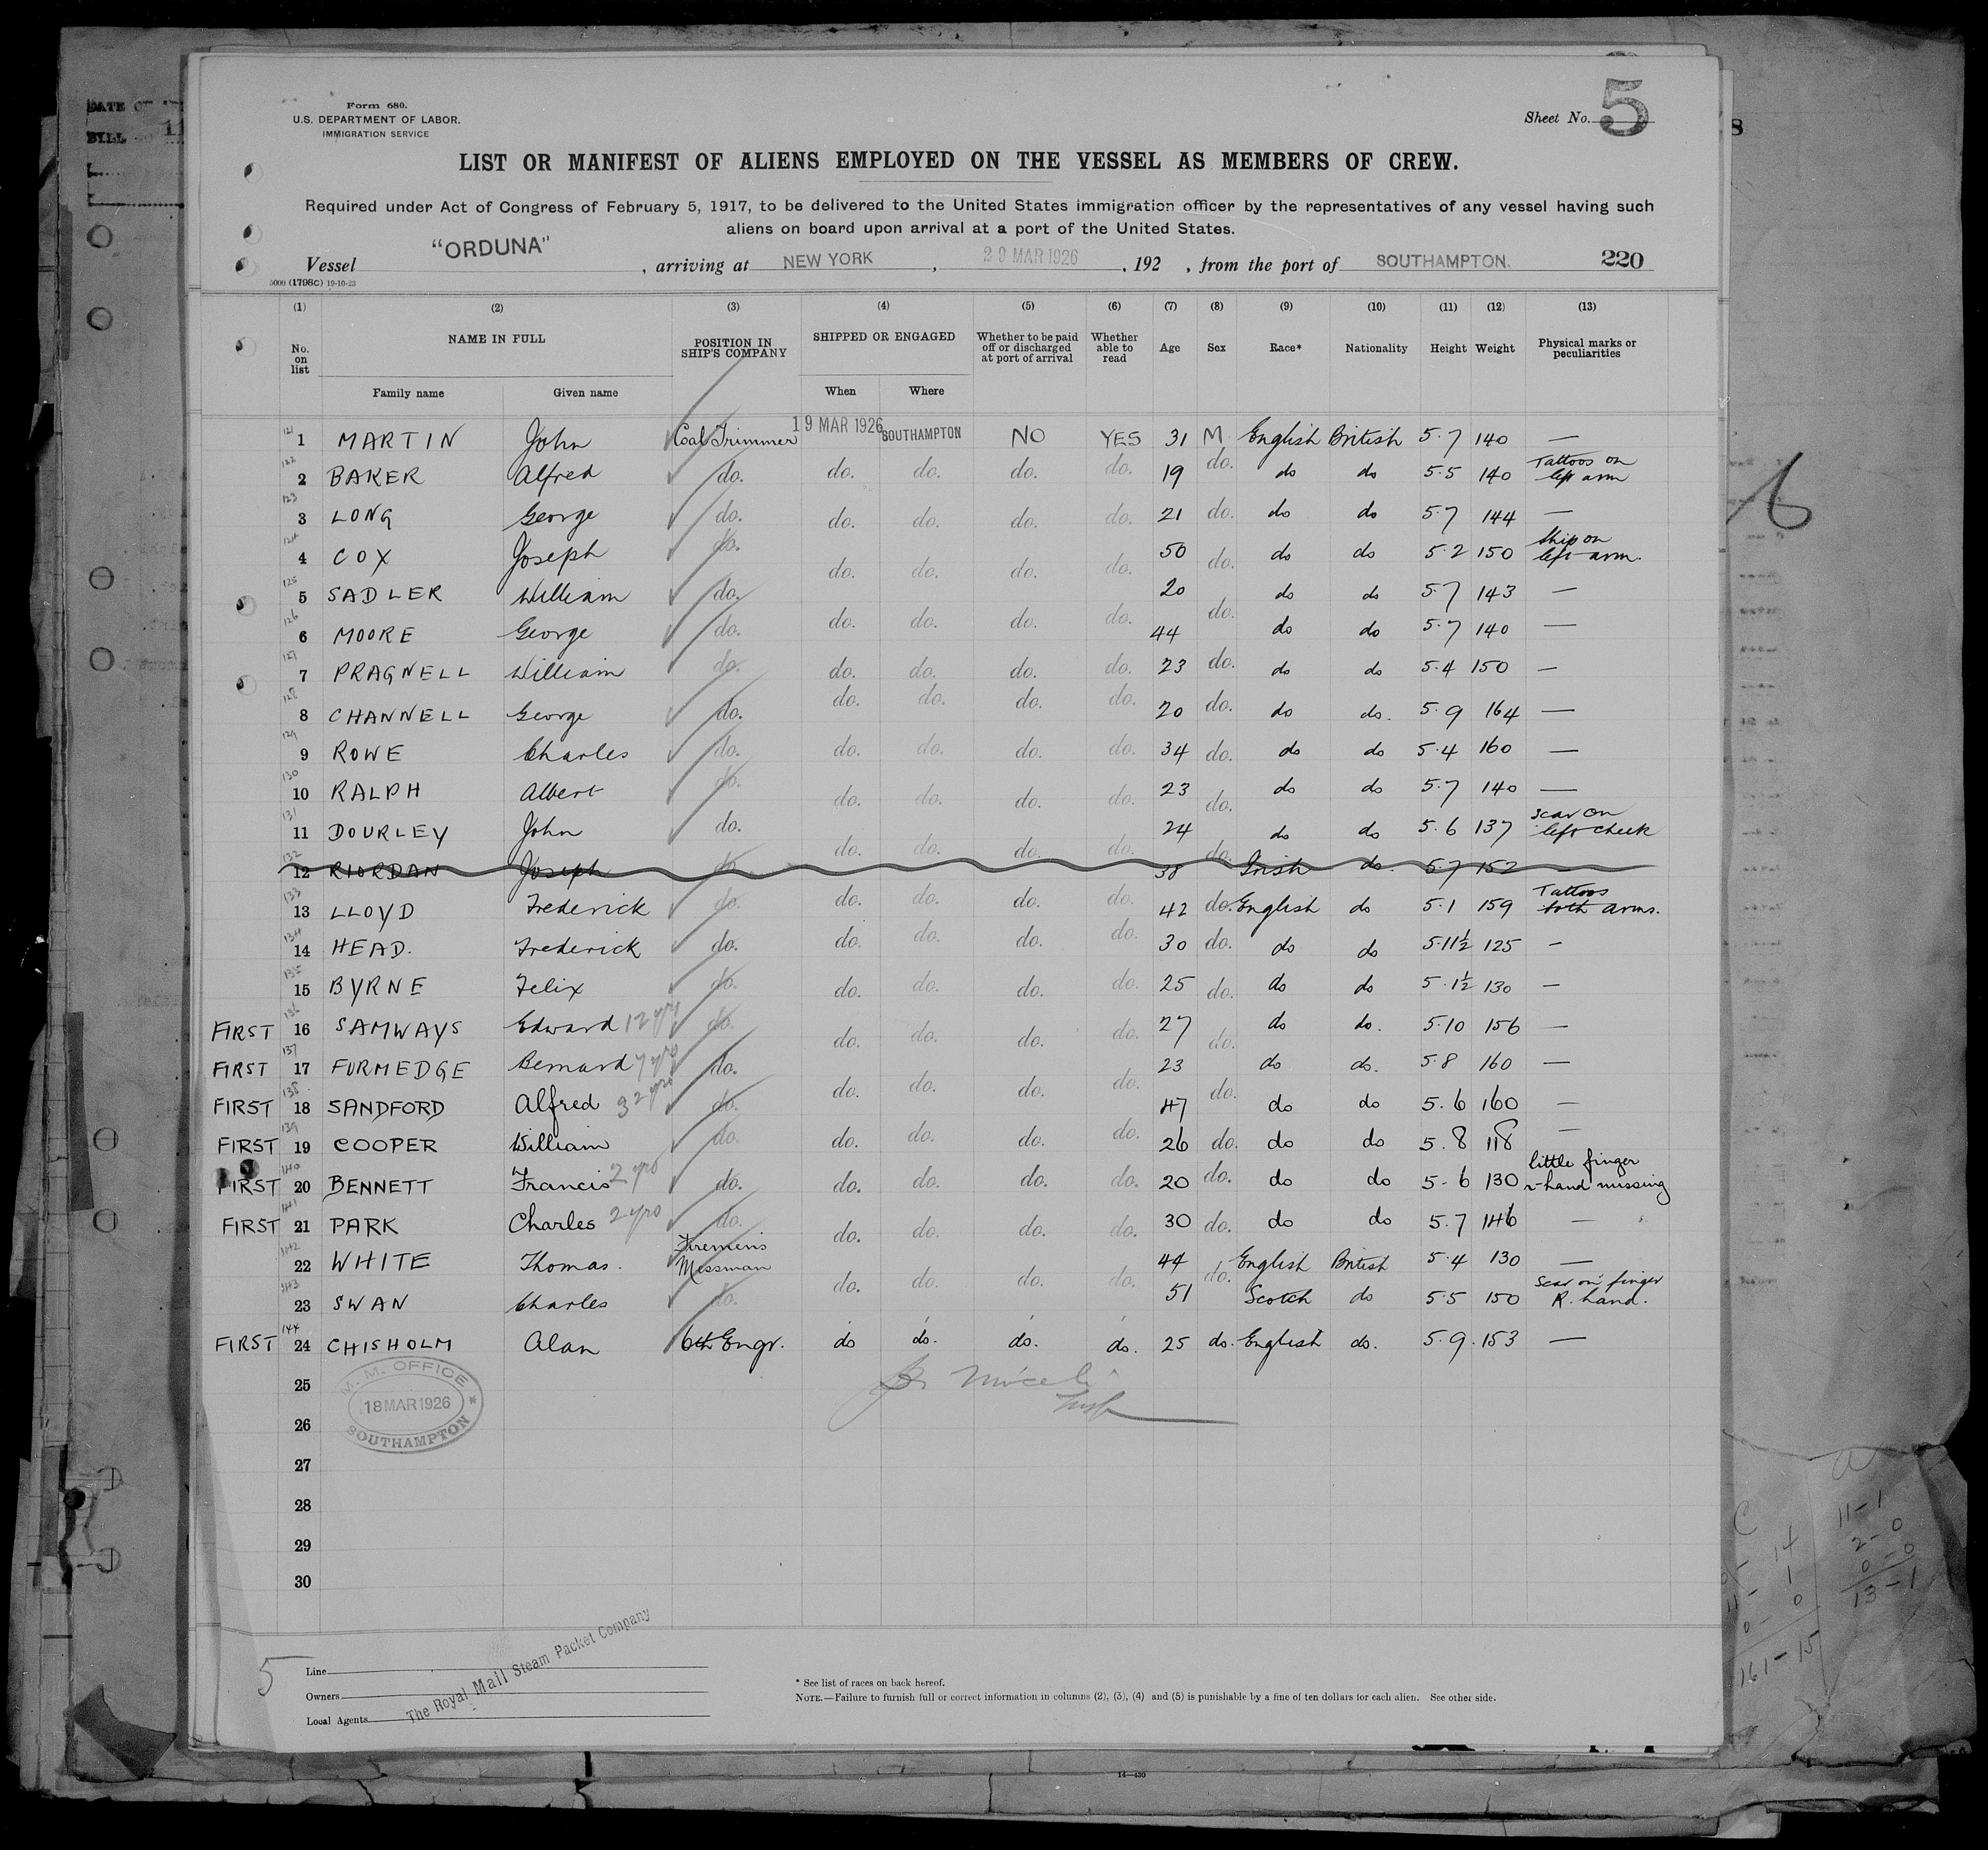 Form 680.
U.S. DEPARTMENT OF LABOR.
IMMIGRATION SERVICE
Sheet No. 5
LIST OR MANIFEST OF ALIENS EMPLOYED ON THE VESSEL AS MEMBERS OF CREW.
Required under Act of Congress of February 5, 1917, to be delivered to the United States immigration officer by the representatives of any vessel having such
aliens on board upon arrival at a port of the United States.
Vessel "ORDUNA", arriving at NEW YORK, 29 MAR 1926, 192 , from the port of SOUTHAMPTON. 220
5000 (1798C) 19-10-23
(1) (2) (3) (4) (5) (6) (7) (8) (9) (10) (11) (12) (13)
No. on list NAME IN FULL POSITION IN SHIP'S COMPANY SHIPPED OR ENGAGED Whether to be paid off or discharged at port of arrival Whether able to read Age Sex Race* Nationality Height Weight Physical marks or peculiarities
Family name Given name When Where
121 1 MARTIN John Coal Trimmer 19 MAR 1926 SOUTHAMPTON NO YES 31 M English British 5.7 140 —
122 2 BAKER Alfred do. do. do. do. do. 19 do. do do 5.5 140 Tattoos on left arm
123 3 LONG George do. do. do. do. do. 21 do. do do 5.7 144 —
124 4 COX Joseph do. do. do. do. do. 50 do. do do 5.2 150 Ship on left arm.
125 5 SADLER William do. do. do. do. do. 20 do. do do 5.7 143 —
126 6 MOORE George do. do. do. do. do. 44 do. do do 5.7 140 —
127 7 PRAGNELL William do. do. do. do. do. 23 do. do do 5.4 150 —
128 8 CHANNELL George do. do. do. do. do. 20 do. do do. 5.9 164 —
129 9 ROWE Charles do. do. do. do. do. 34 do. do do 5.4 160 —
130 10 RALPH Albert do. do. do. do. do. 23 do. do do 5.7 140 —
131 11 DOURLEY John do. do. do. do. do. 24 do. do do 5.6 137 Scar on left cheek
132 12 RIORDAN Joseph do. 38 Irish do. 5.7 152 —
133 13 LLOYD Frederick do. do. do. do. do. 42 do. English do 5.1 159 Tattoos both arms.
134 14 HEAD. Frederick do. do. do. do. do. 30 do. do do 5.11½ 125 —
135 15 BYRNE Felix do. do. do. do. do. 25 do. do do 5.1½ 130 —
FIRST 136 16 SAMWAYS Edward 12 yrs do. do. do. do. do. 27 do. do do. 5.10 156 —
FIRST 137 17 FURMEDGE Bernard 7 yrs do. do. do. do. do. 23 do do. 5.8 160 —
FIRST 138 18 SANDFORD Alfred 32 yrs do. do. do. do. do. 47 do. do do 5.6 160 —
FIRST 139 19 COOPER William do. do. do. do. do. 26 do. do do 5.8 118 —
FIRST 140 20 BENNETT Francis 2 yrs do. do. do. do. do. 20 do. do do 5-6 130 little finger r-hand missing
FIRST 141 21 PARK Charles 2 yrs do. do. do. do. do. 30 do. do do 5.7 146 —
142 22 WHITE Thomas. Firemen's Messman 44 do. English British 5.4 130 —
143 23 SWAN Charles do. do. do. do. do. 51 Scotch do 5.5 150 Scar on finger R. hand.
FIRST 144 24 CHISHOLM Alan 6th Engr. do do. do. do. 25 do. English do. 5.9. 153 —
25
26
M. M. OFFICE
18 MAR 1926
SOUTHAMPTON
27
28
29
30
5
Line
Owners
Local Agents
The Royal Mail Steam Packet Company
* See list of races on back hereof.
NOTE.—Failure to furnish full or correct information in columns (2), (3), (4) and (5) is punishable by a fine of ten dollars for each alien. See other side.
14—430
C
14
1
0
161-15
11-1
2-0
0-0
13-1